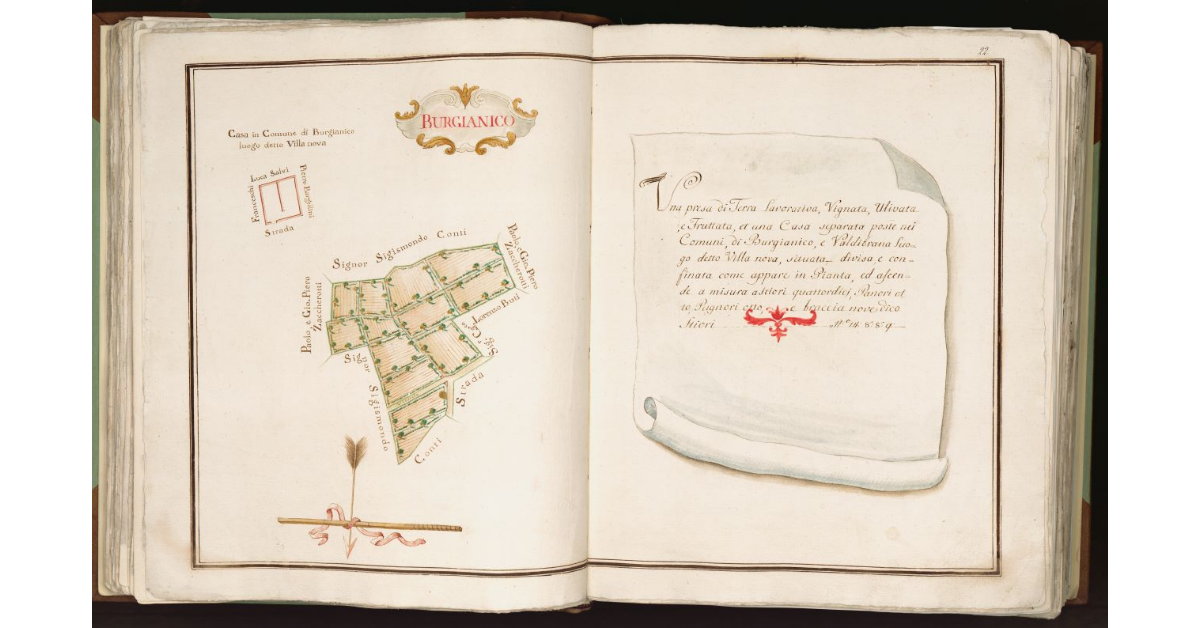 BURGIANICO
Casa in Comune di Burgianico
luogo detto Villa nova
Luca Salvi
Franceschi
Strada
Signor Sigismondo Conti
Paolo, e Gio. Piero
Zaccheroni
Paolo, e Gio. Piero
Zaccheroni
Sig.r Cap. Lorenzo Buti
Strada
Signor Sigismondo Conti
22
Una presa di Terra Lavorativa, Vignata, Ulivata
e Fruttata, et una Casa separata poste nei
Comuni, di Burgianico, e Valdibrana luo-
go detto Villa nova, situata divisa e con-
finata come appare in Pianta, ed ascen-
de a misura a stiori quattordici, Panori ot
to Pugnori otto, e braccia nove dico
Stiori N.o 14. 8. 8. 9.